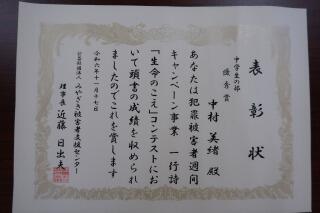 表彰状
中学生の部
優秀賞
中村美緒殿
あなたは犯罪被害者週間
キャンペーン事業 一行詩
「生命のこえ」コンテストにお
いて頭書の成績を収められ
ましたのでこれを賞します
令和六年十一月十七日
公益社団法人 みやざき被害者支援センター
理事長 近藤日出夫